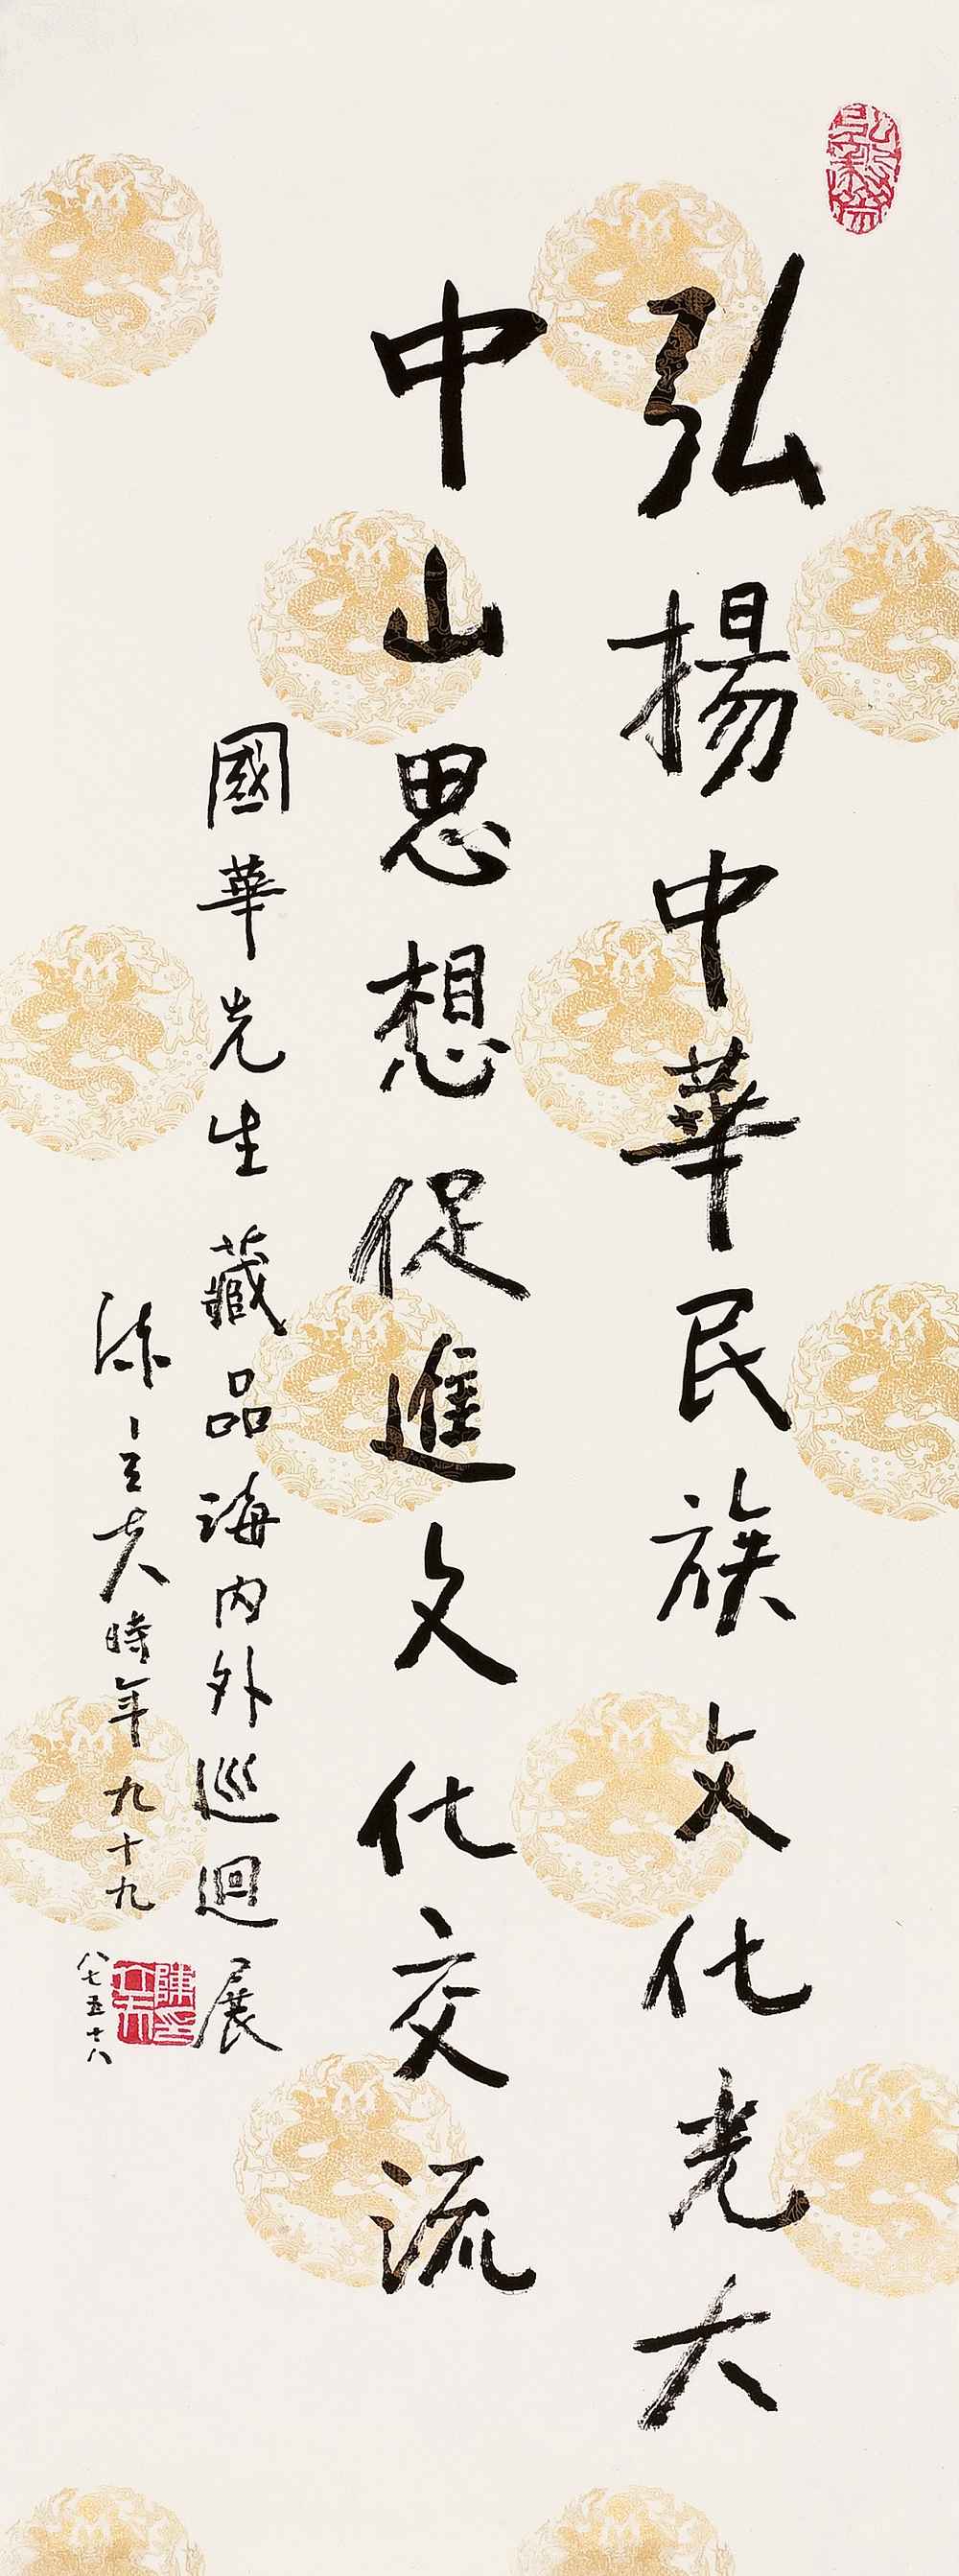 弘揚中華民族文化光大
中山思想促進文化交流
國華先生藏品海內外巡迴展
陳立夫時年九十九
八七五十八
陳立夫印